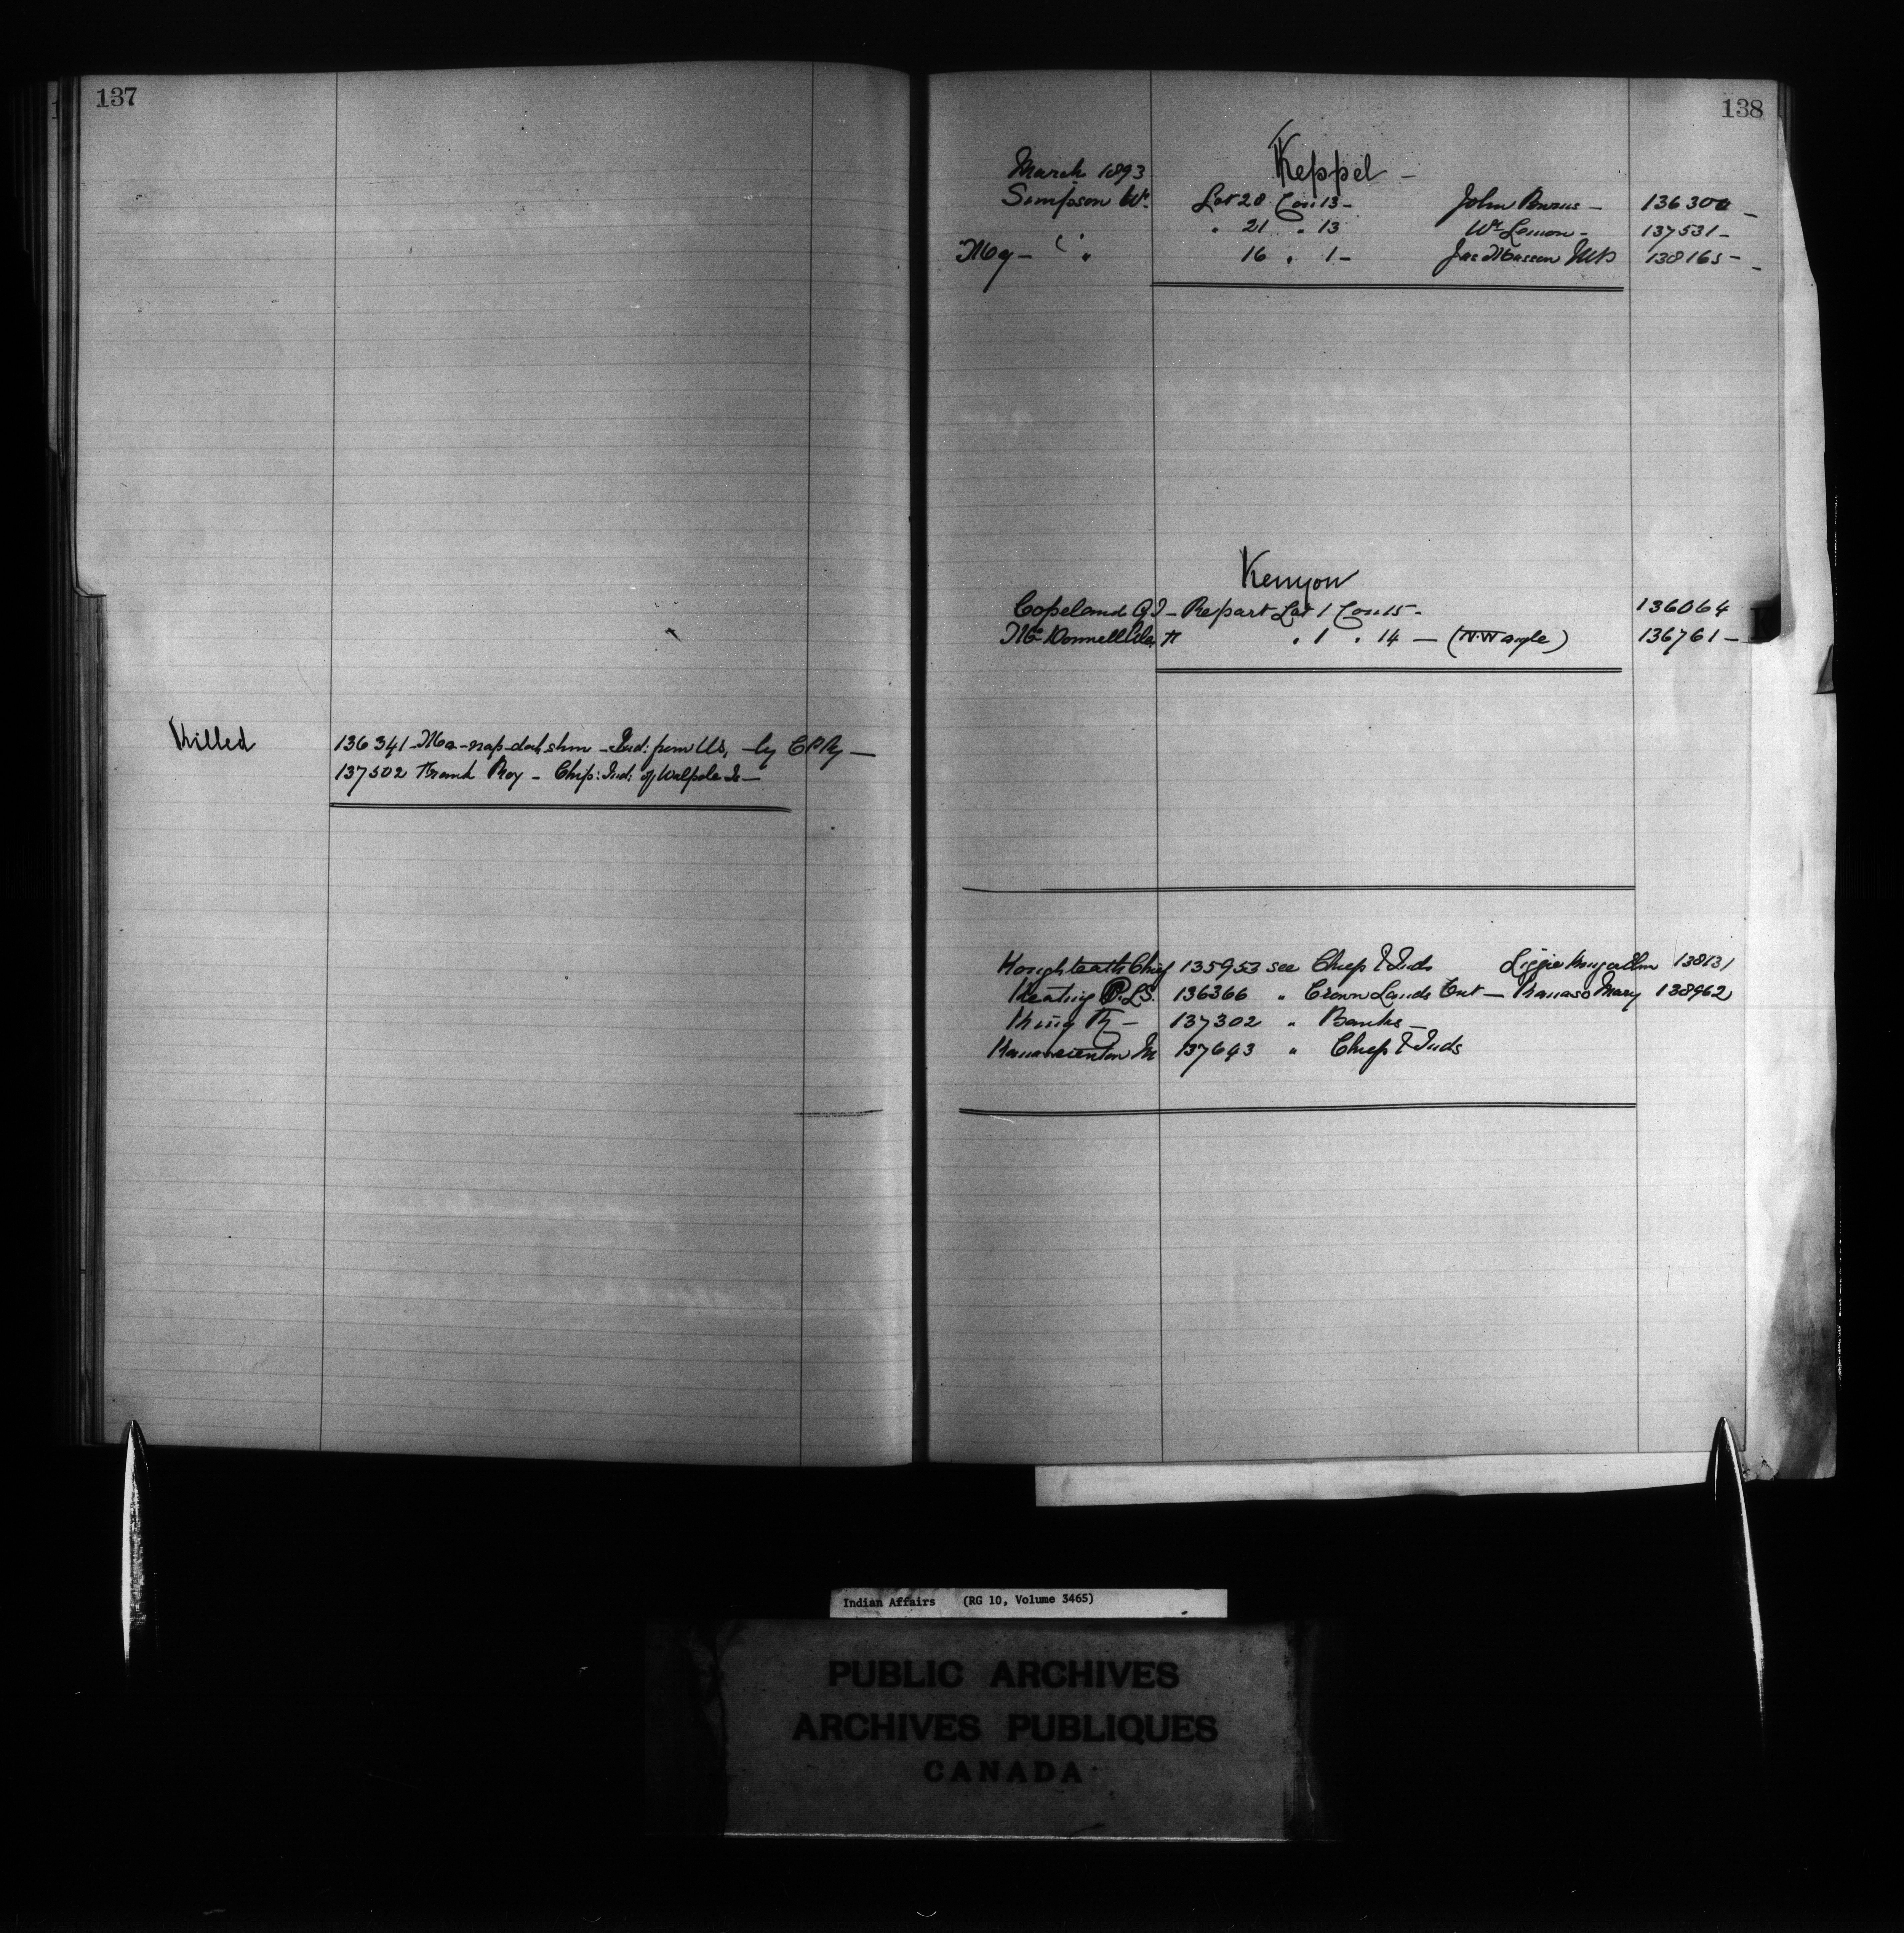 137
Killed
136341 - Ma-nap-dah shm - Ind: from US, - by CPRy -
137502 Frank Roy - Chip: Ind: of Walpole Is -
138
Keppel -
March 1893
Simpson Wm. Lot 20 Con 13 - John Burns - 136300 -
" 21 " 13 Wm Lemon - 137531 -
" 16 " 1 - Jas Masson MP 138165 -
Kenyon
Copeland - Re part Lot 1 Con 15 - 136064
McDonnell " 1 " 14 - (N.W angle) 136761 -
Chief 135953 see Chiefs & Inds Lizzie 138131
Keating P.L.S. 136366 " Crown Lands Ont - Kanaso Mary 138962
King - 137302 " Banks -
M 137643 " Chiefs & Inds
Indian Affairs (RG 10, Volume 3465)
PUBLIC ARCHIVES
ARCHIVES PUBLIQUES
CANADA